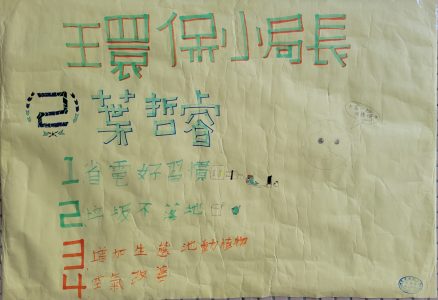 環保小局長
2 葉哲睿
1 省電好習慣
2 垃圾不落地
3 增加生態池動植物
4 空氣改善